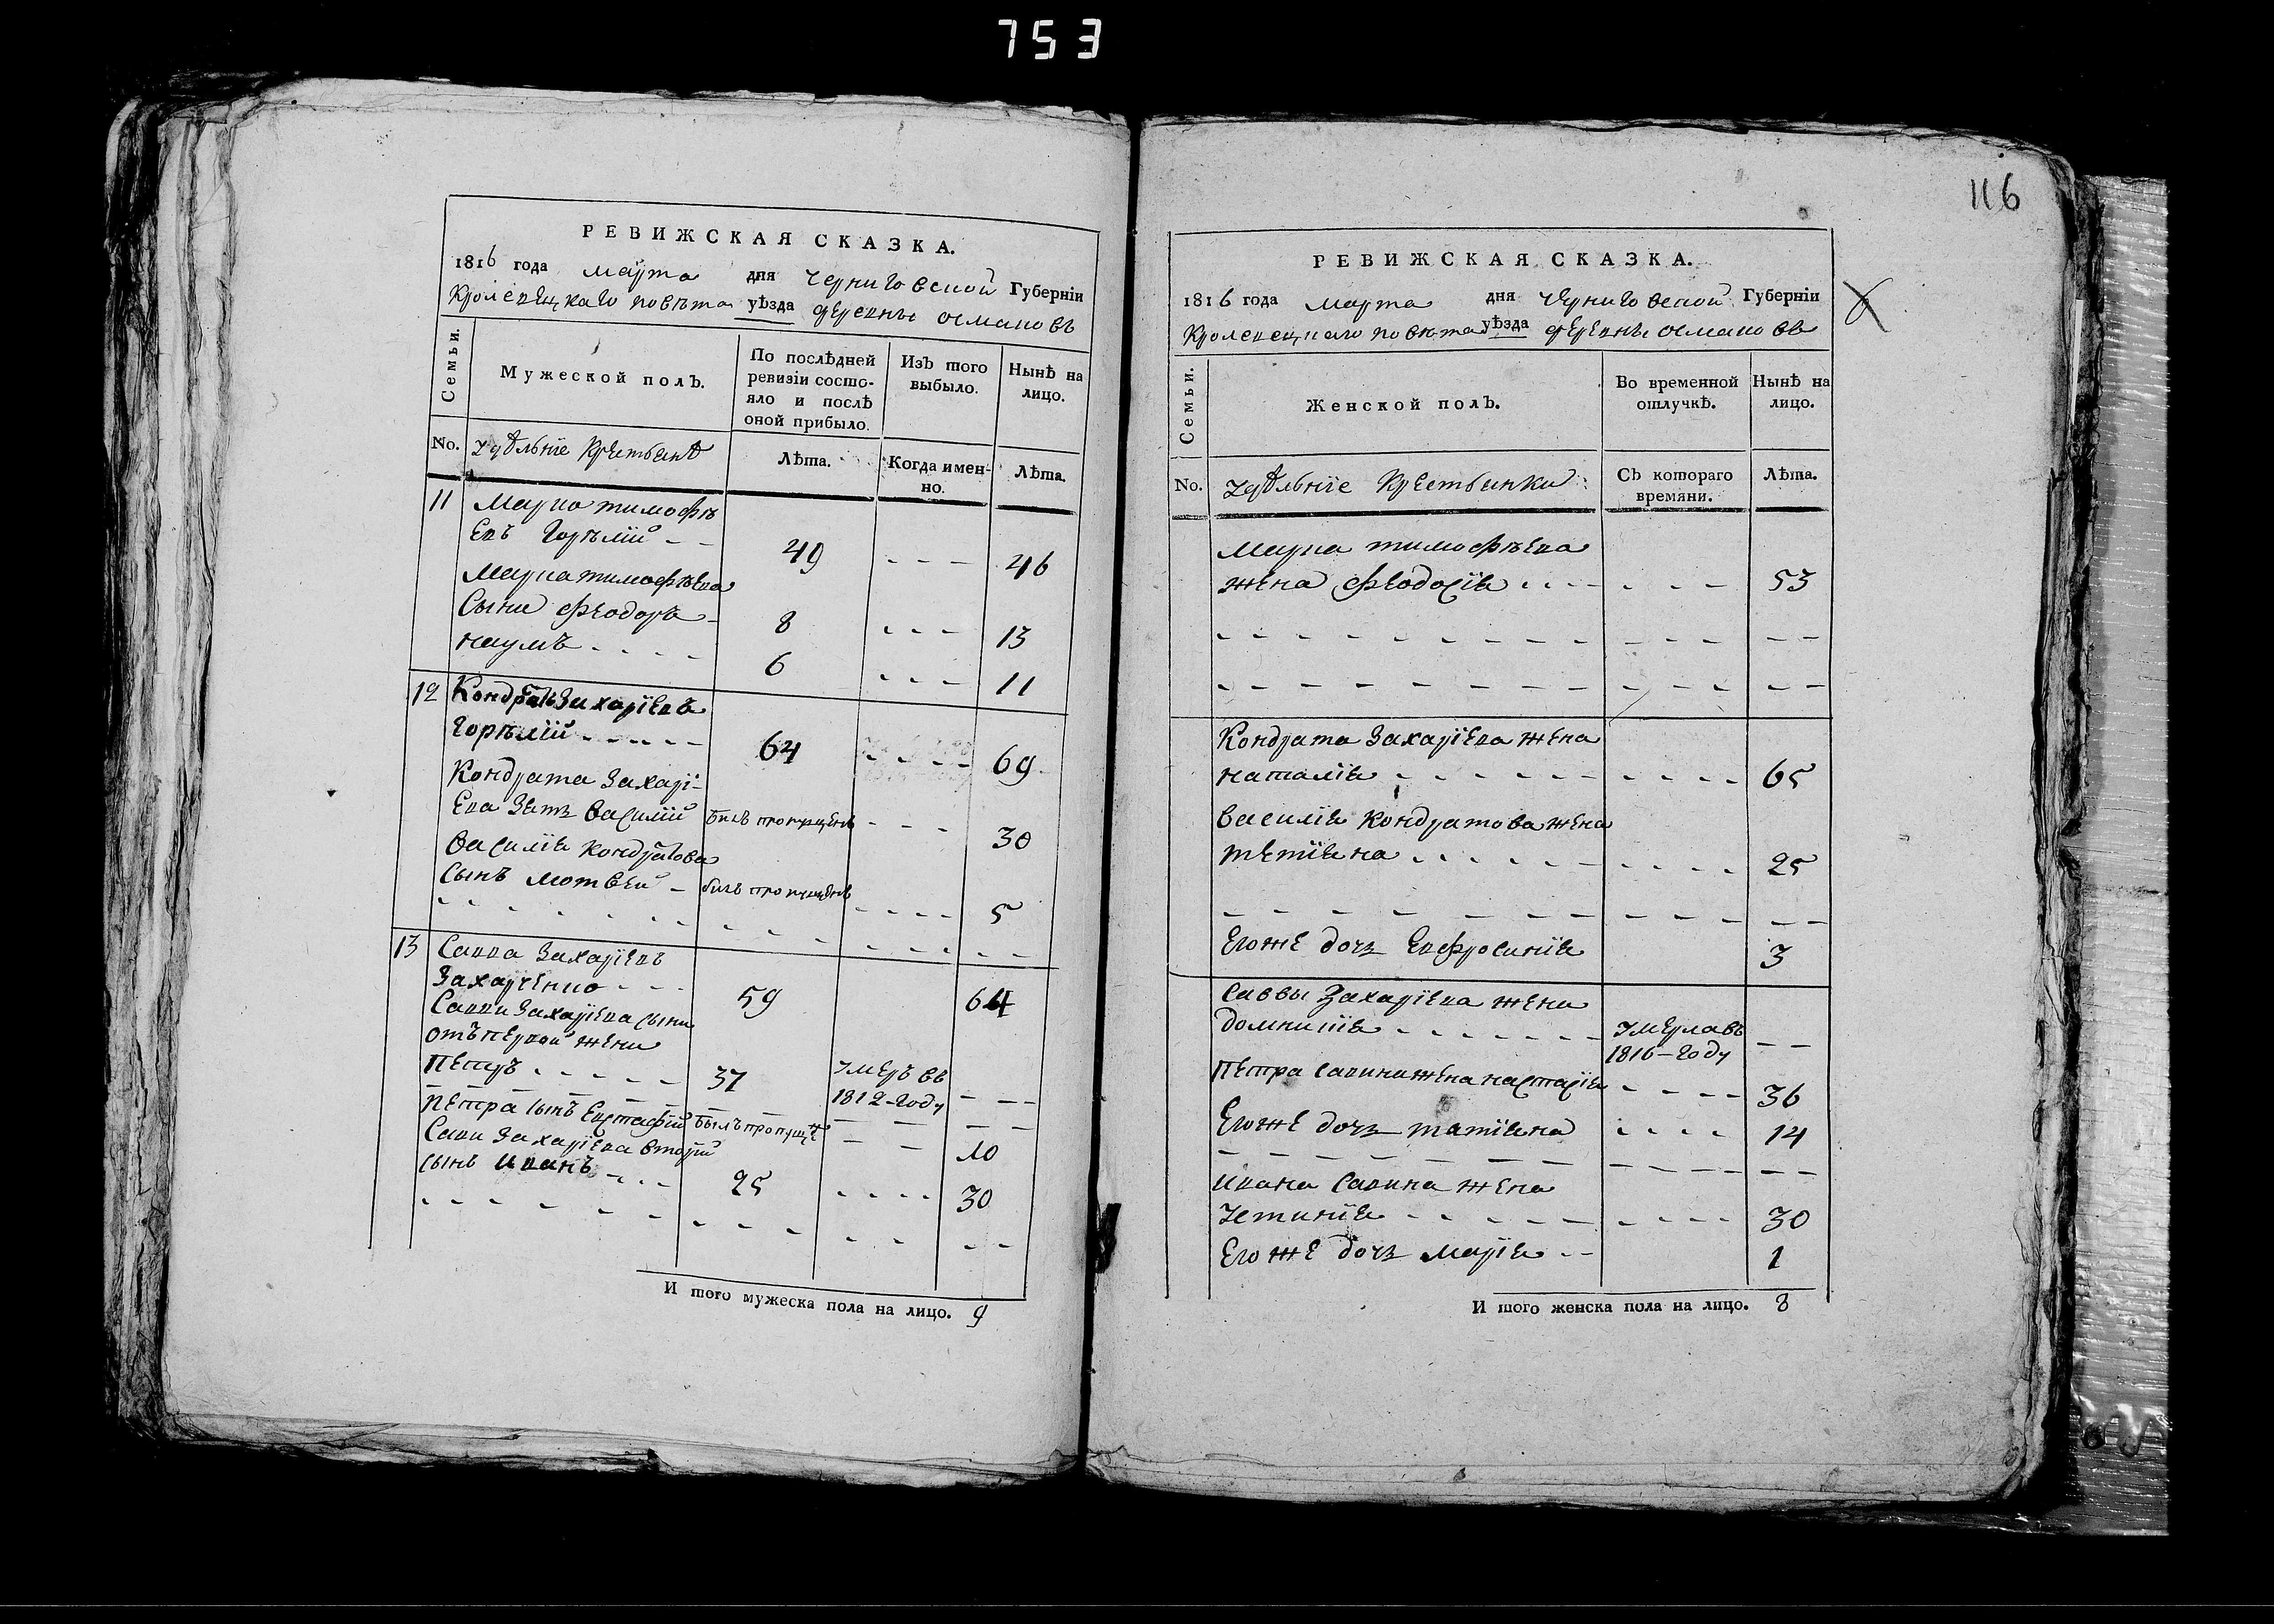 753
116
РЕВИЖСКАЯ СКАЗКА.
1816 года марта дня Черниговской Губерніи
Кролевецкаго повѣта уѣзда деревнѣ Османовъ
Семьи.
Мужеской полъ.
По послѣдней ревизіи состояло и послѣ оной прибыло.
Изъ того выбыло.
Нынѣ на лицо.
No. удѣльніе крестьянѣ
Лѣта.
Когда именно.
Лѣта.
11 Марко тимофѣ
евъ Горѣлій - - 49 - - - 46
Марка тимофѣева
Сыни Феодоръ - 8 - - - 13
наумъ - - - - 6 - - - 11
12 Кондратъ Захаріевъ
Горѣлій - - - - - 64 - - - - 69
Кондрата Захарі-
ева Зять Василій былъ пропущенъ - - - 30
Василія Кондратова
Сынъ Мотвей - билъ пропущенъ - - - - 5
13 Савва Захаріевъ
Захарченко - - - 59 64
Савви Захаріева сыни
отъ первой жени
Петръ - - - - - 37 умеръ въ
1812-году - - -
Петра сынъ Евстафій былъ пропуще - - 10
Сави Захаріева вторій
сынъ Иванъ - - - 25 - - - - 30
И того мужеска пола на лицо. 9
РЕВИЖСКАЯ СКАЗКА.
1816 года марта дня Черниговской Губерніи
Кролевецкаго повѣта уѣзда деревнѣ Османовъ
Семьи.
Женской полъ.
Во временной отлучкѣ.
Нынѣ на лицо.
No. удѣльніе крестьянки
Съ котораго времяни.
Лѣта.
Марка тимофѣева
жена Феодосія - - - - - - - 53
Кондрата Захаріева жена
наталія - - - - - - - - - - 65
Василія Кондратова жена
тетіяна - - - - - - - - - - 25
Егоже дочь Евфросинія 3
Саввы Захаріева жена
домникія - - - - - - - умерла въ
1816-году - -
Петра савина жена настасія - - - - 36
Егоже дочь татіяна - - - - 14
Ивана Савина жена
Устинія - - - - - - - - - 30
Его же дочь Марія - - 1
И того женска пола на лицо. 8